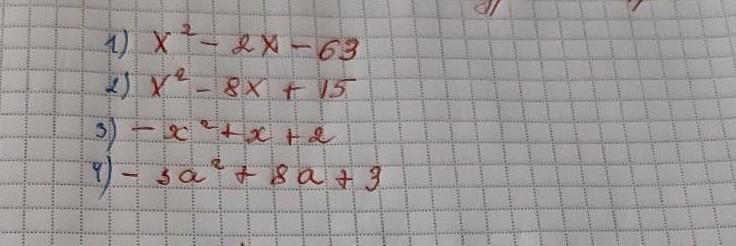 1) x² - 2x - 63
2) x² - 8x + 15
3) - x² + x + 2
4) - 3a² + 8a + 3